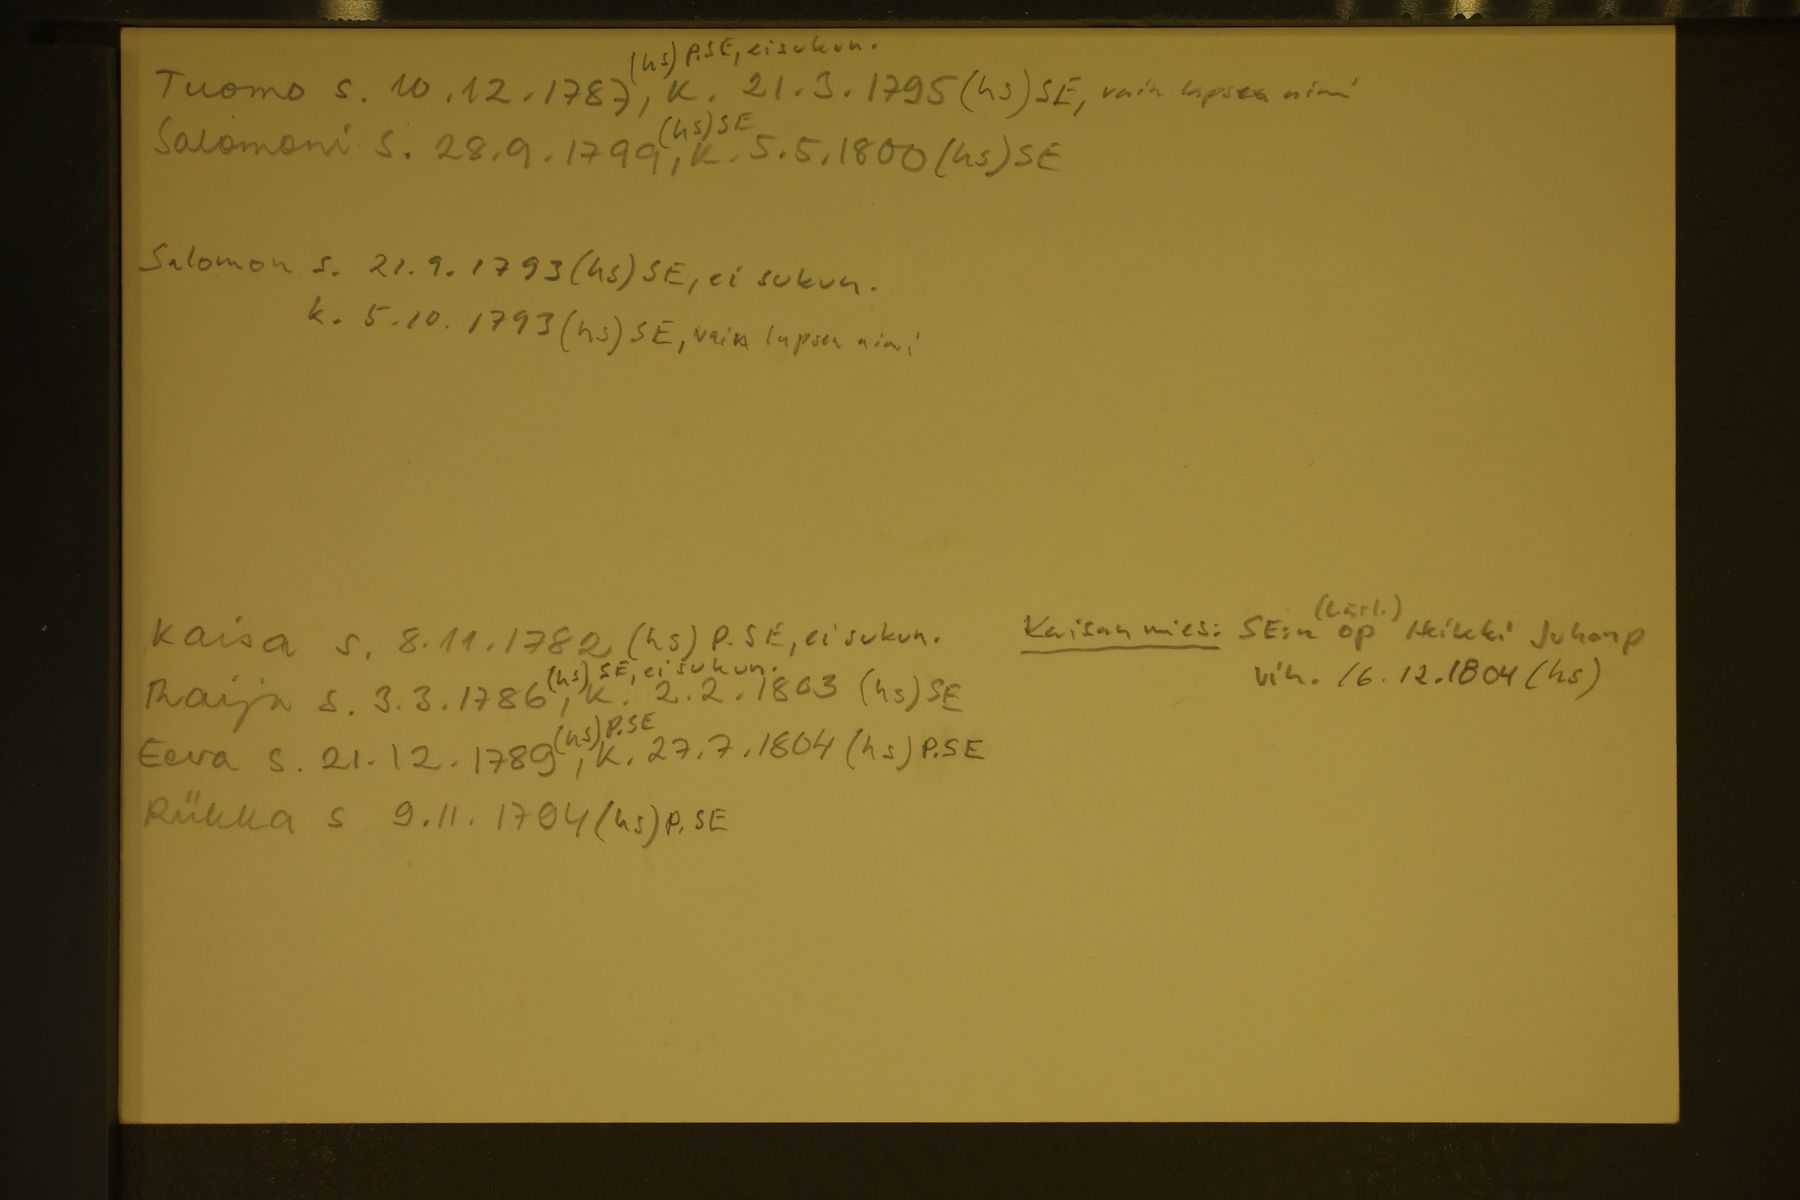 (hs) P.SE, ei sukun.
Tuomo s. 10.12.1787, k. 21.3.1795 (hs) SE, vain lapsen nimi
(hs) SE
Salomoni s. 28.9.1799, k. 5.5.1800 (hs) SE
Salomon s. 21.9.1793 (hs) SE, ei sukun.
k. 5.10.1793 (hs) SE, vain lapsen nimi
Kaisa s. 8.11.1782 (hs) P.SE, ei sukun.
(hs) SE, ei sukun.
Maija s. 3.3.1786, k. 2.2.1803 (hs) SE
(hs) P.SE
Eeva s. 21.12.1789, k. 27.7.1804 (hs) P.SE
Riikka s 9.11.1794 (hs) P.SE
Kaisan mies: SE:n op Heikki Juhonp
vih. 16.12.1804 (hs)